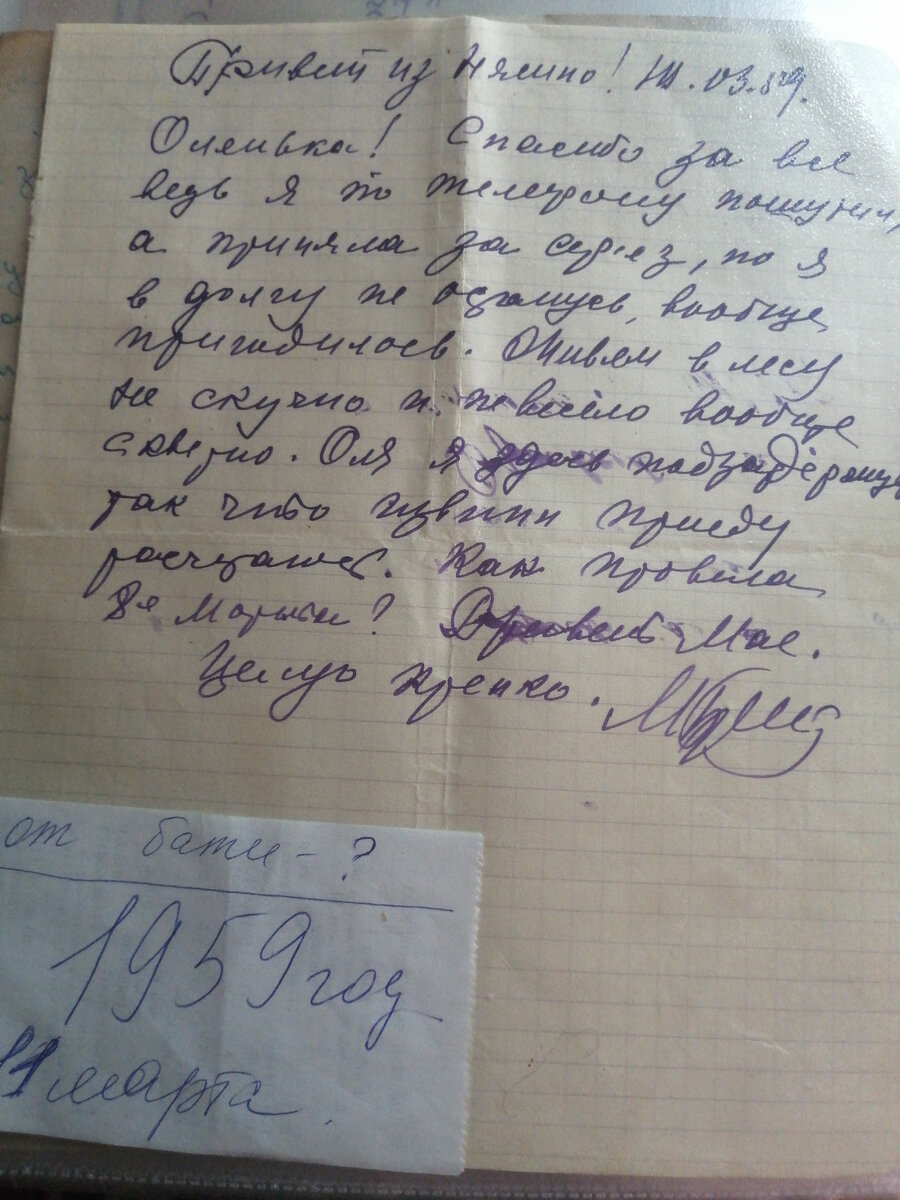 Привет из Нялино! 11.03.59.
Оленька! Спасибо за все
ведь я по телефону пошутил,
а приняла за серьез, но я
в долгу не останусь, вообще
пригодилось. Живем в лесу
не скучно и невесело вообще
скверно. Оля я здесь подзадержусь
так что извини приеду
расчитаюсь. Как провела
8е Марта? Привет Мае.
Целую крепко.
от бати - ?
1959 год
11 марта